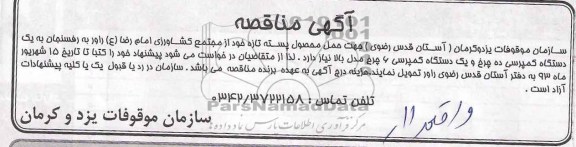 آگهی مناقصه
سازمان موقوفات یزدوکرمان ( آستان قدس رضوی) جهت حمل محصول پسته تازه خود از مجتمع کشاورزی امام رضا (ع) راور به رفسنجان به یک
دستگاه کمپرسی ده چرخ و یک دستگاه کمپرسی ۶ چرخ مدل بالا نیاز دارد . لذا از متقاضیان در خواست می شود پیشنهاد خود را کتبا تا تاریخ ۱۵ شهریور
ماه ۹۳ به دفتر آستان قدس رضوی راور تحویل نمایند.هزینه درج آگهی به عهده برنده مناقصه می باشد . سازمان در رد یا قبول یک یا کلیه پیشنهادات
آزاد است .
تلفن تماس : ۰۳۴۲/۳۷۲۲۱۵۸
ParsNamadData
مرکز فرآوری اطلاعات پارس نماد داده ها
سازمان موقوفات یزد و کرمان